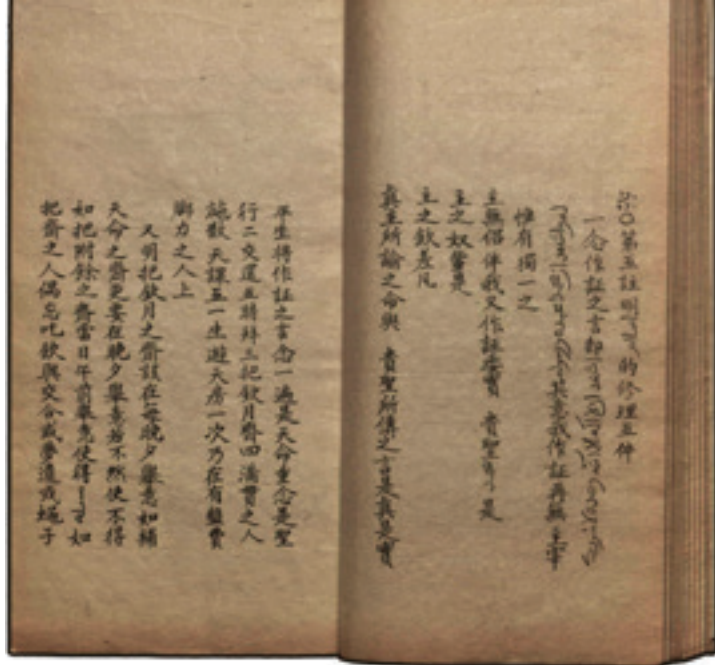 第五註明的修理五件
一念作証之言
其意我作証再無主宰
惟有獨一之
主無侣伴我又作証委實 貴聖是
主之奴僕是
主之欽差凡
真主所諭之命與 貴聖所傳之言是真是實
平生將作証之言念一遍是天命重念是聖
行二交還五時拜三把欽月齋四滿貫之人
施散天課五一生遊天房一次乃在有盤費
脚力之人上
又明把欽月之齋該在每晚夕舉意如補
天命之齋更要在晚夕舉意若不然使不得
如把附餘之齋當日午前舉意使得如
把齋之人偶忘吃飲與交合或夢遺或蠅子